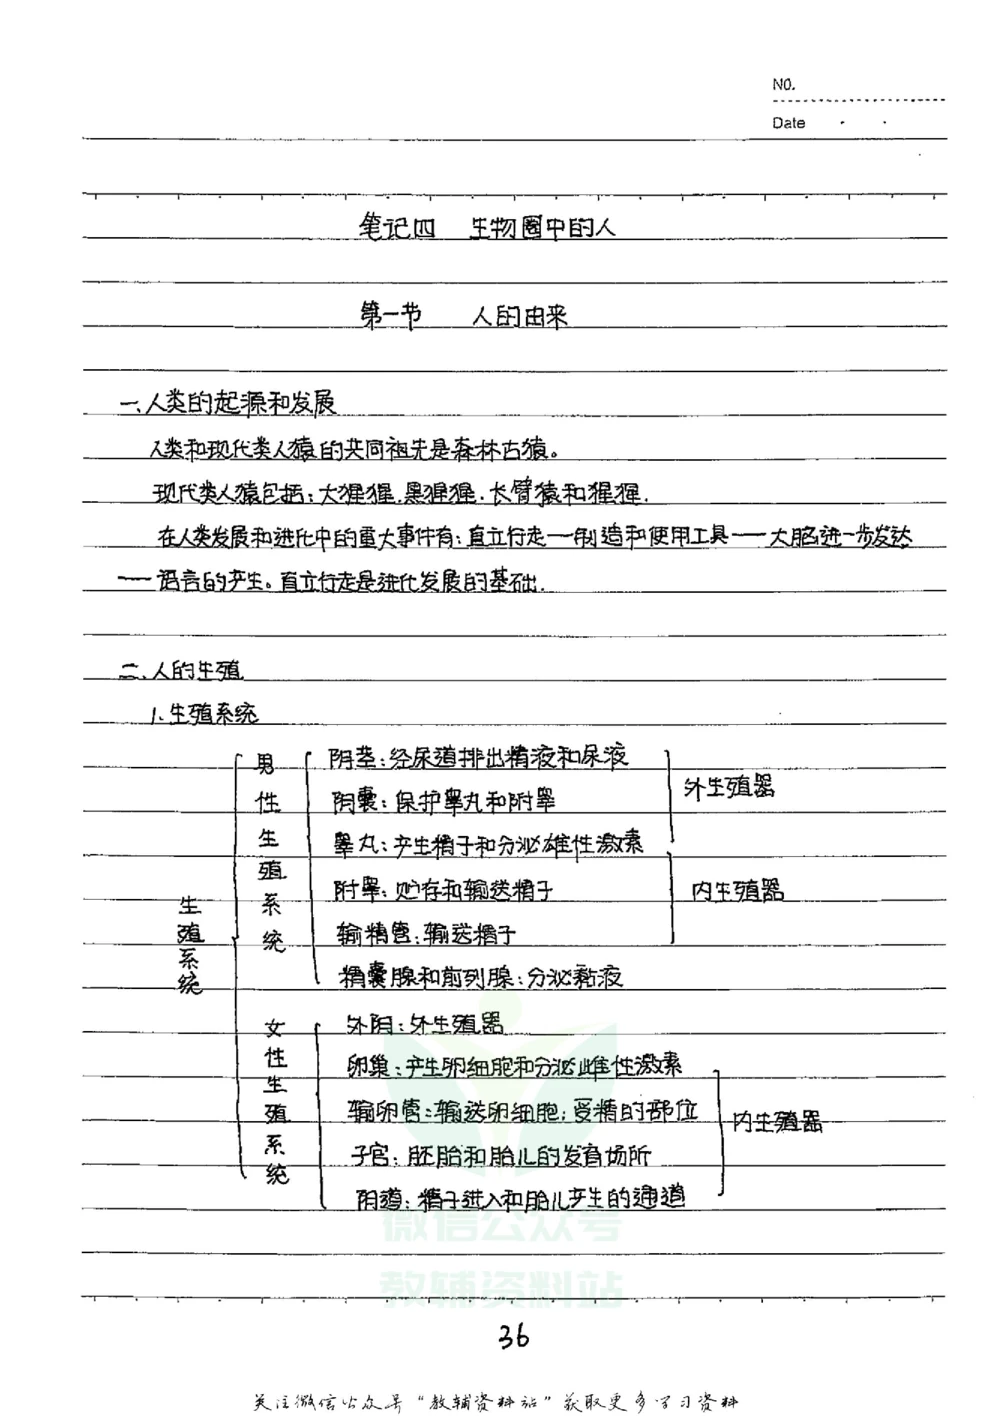 NO.
Date
笔记四 生物圈中的人
第一节 人的由来
一、人类的起源和发展
人类和现代类人猿的共同祖先是森林古猿。
现代类人猿包括:大猩猩.黑猩猩.长臂猿和猩猩.
在人类发展和进化中的重大事件有:直立行走——制造和使用工具——大脑进一步发达
——语言的产生。直立行走是进化发展的基础.
二、人的生殖
1.生殖系统
生殖系统
男性生殖系统
阴茎:经尿道排出精液和尿液
阴囊:保护睾丸和附睾
外生殖器
睾丸:产生精子和分泌雄性激素
附睾:贮存和输送精子
输精管:输送精子
内生殖器
精囊腺和前列腺:分泌黏液
女性生殖系统
外阴:外生殖器
卵巢:产生卵细胞和分泌雌性激素
输卵管:输送卵细胞;受精的部位
子宫:胚胎和胎儿的发育场所
阴道:精子进入和胎儿产生的通道
内生殖器
微信公众号
教辅资料站
36
关注微信公众号“教辅资料站”获取更多学习资料